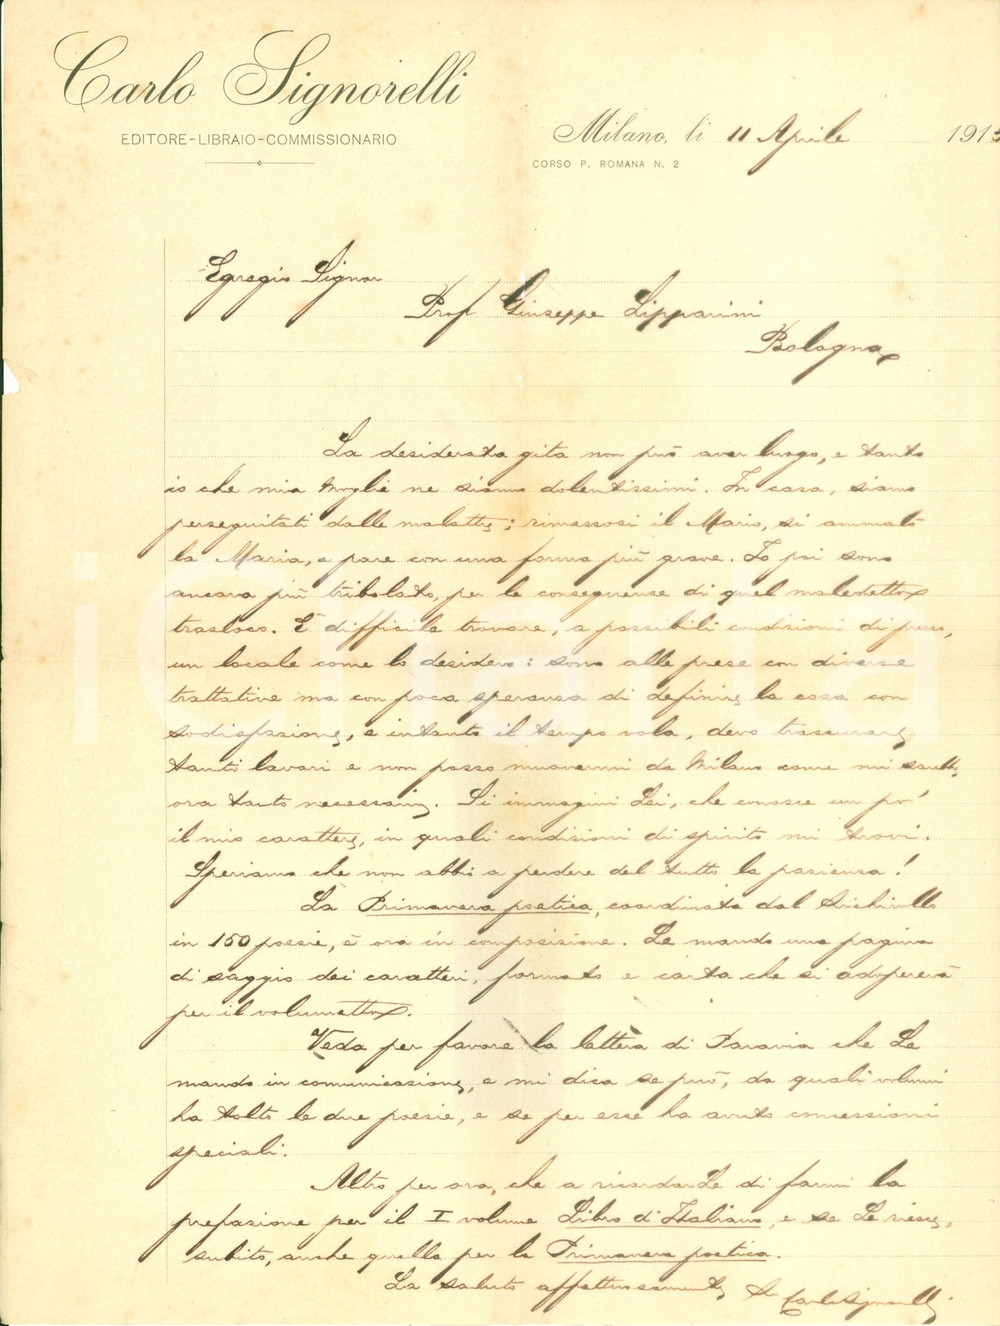 Carlo Signorelli
EDITORE-LIBRAIO-COMMISSIONARIO
Milano, li 11 Aprile 191
CORSO P. ROMANA N. 2
Egregio Signor
Prof Giuseppe Lipparini
Bologna
La desiderata gita non può aver luogo, e tanto
io che mia moglie ne siamo dolentissimi. In casa, siamo
perseguitati dalle malattie; rimessosi il Mario, si ammalò
la Maria, e pare con una forma più grave. Io poi sono
ancora più tribolato, per le conseguenze di quel maledetto
trasloco. È difficile trovare, a possibili condizioni di prezzo,
un locale come lo desidero: sono alle prese con diverse
trattative ma con poca speranza di definire la cosa con
sodisfazione, e intanto il tempo vola, devo trascurare
tanti lavori e non posso muovermi da Milano come mi sarebbe
ora tanto necessario. Si immagini Lei, che conosce un po'
il mio carattere, in quali condizioni di spirito mi trovi.
Speriamo che non abbi a perdere del tutto la pazienza!
La Primavera poetica, coordinata dal
in 150 poesie, è ora in composizione. Le mando una pagina
di saggio dei caratteri, formato e carta che si adopererà
per il volumetto.
Veda per favore la lettera di Paravia che Le
mando in comunicazione, e mi dica se può, da quali volumi
ha tolto le due poesie, e se per esse ha avuto concessioni
speciali.
Altro per ora, che a ricordarLe di farmi la
prefazione per il I volume Libro d'Italiano, e se Le riesce,
subito, anche quella per la Primavera poetica.
La saluto affettuosamente Carlo Signorelli
iGnatia